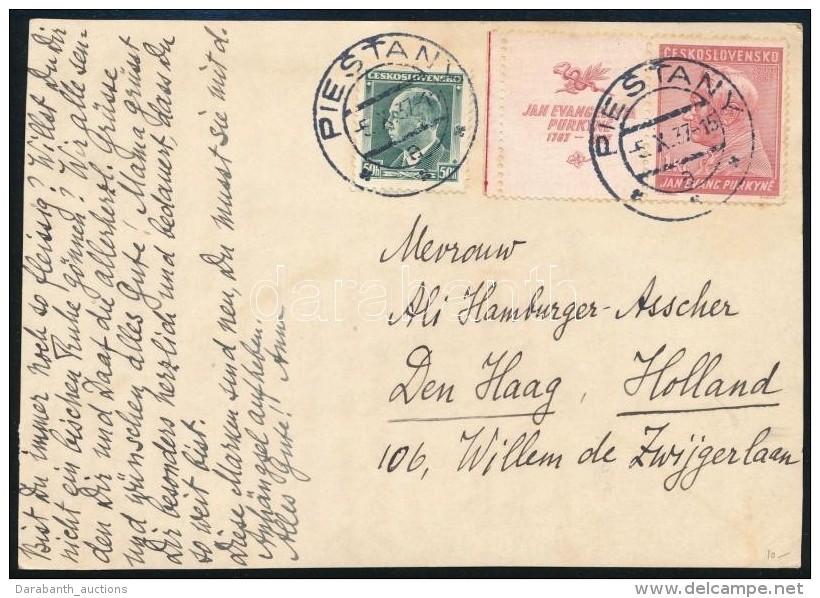 Bist Du immer noch so fleissig? Willst Du Dir
nicht ein bischen Ruhe gönnen? Wir alle sen-
den Dir und Zaat die allerherzl. Grüsse
und wünschen alles Gute! Mama grüsst
Dir besonders herzlich und bedauert, dass Du
so weit bist.
Diese Marken sind neu, Du musst sie mit d.
Anhängsel aufheben.
Alles Gute! Anna
PIEŠŤANY
5.X.37-15
a
ČESKOSLOVENSKO
50h 50h
JAN EVANG
PURKY
1787 –
PIEŠŤANY
5.X.37-15
a
ČESKOSLOVENSKO
JAN EVANG PURKYNĚ
Mevrouw
Ali Hamburger-Asscher
Den Haag, Holland
106, Willem de Zwijgerlaan
darabanth
10.-
Darabanth_auctions
delcampe.net